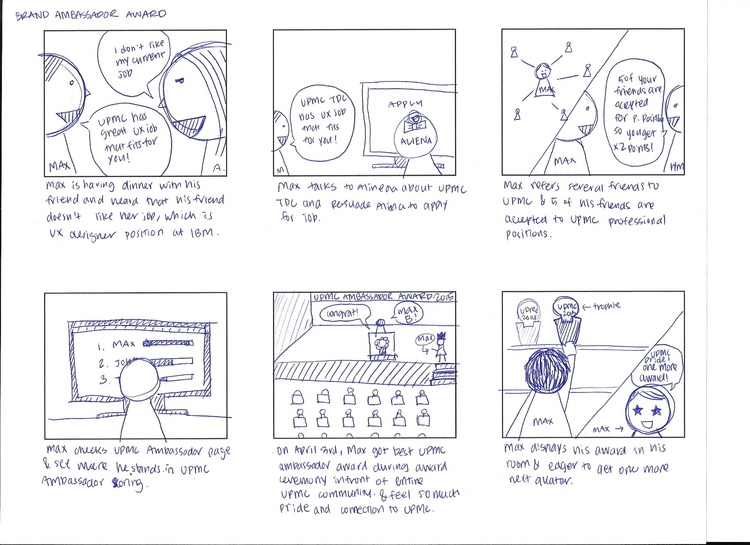 BRAND AMBASSADOR AWARD
I don't like
my current
job
UPMC has
great UX job
that fits for
you!
MAX
A.
Max is having dinner with his
friend and heard that his friend
doesn't like her job, which is
UX designer position at IBM.
UPMC TDC
has UX job
that fits
for you!
M
APPLY
ALIENA
Max talks to Alinena about UPMC
TDC and persuade Aliena to apply
for job.
MAX
5 of your
friends are
acepted
for P. Position
so you get
x2 points!
MAX
HM
Max refers several friends to
UPMC & 5 of his friends are
accepted to UPMC professional
positions.
1. MAX
2. JOH
3.
Max checks UPMC Ambassador page
& see where he stands in UPMC
Ambassador
UPMC AMBASSADOR AWARD 2015
congrat!
MAX
B.
MAX
On April 3rd, Max got best UPMC
ambassador award during award
ceremony infront of entire
UPMC community. & feel so much
pride and connection to UPMC.
UPMC
2014
UPMC
2015
← trophie
MAX
UPMC
pride!
one more
award!
MAX →
Max displays his award in his
room & eager to get one more
next quator.